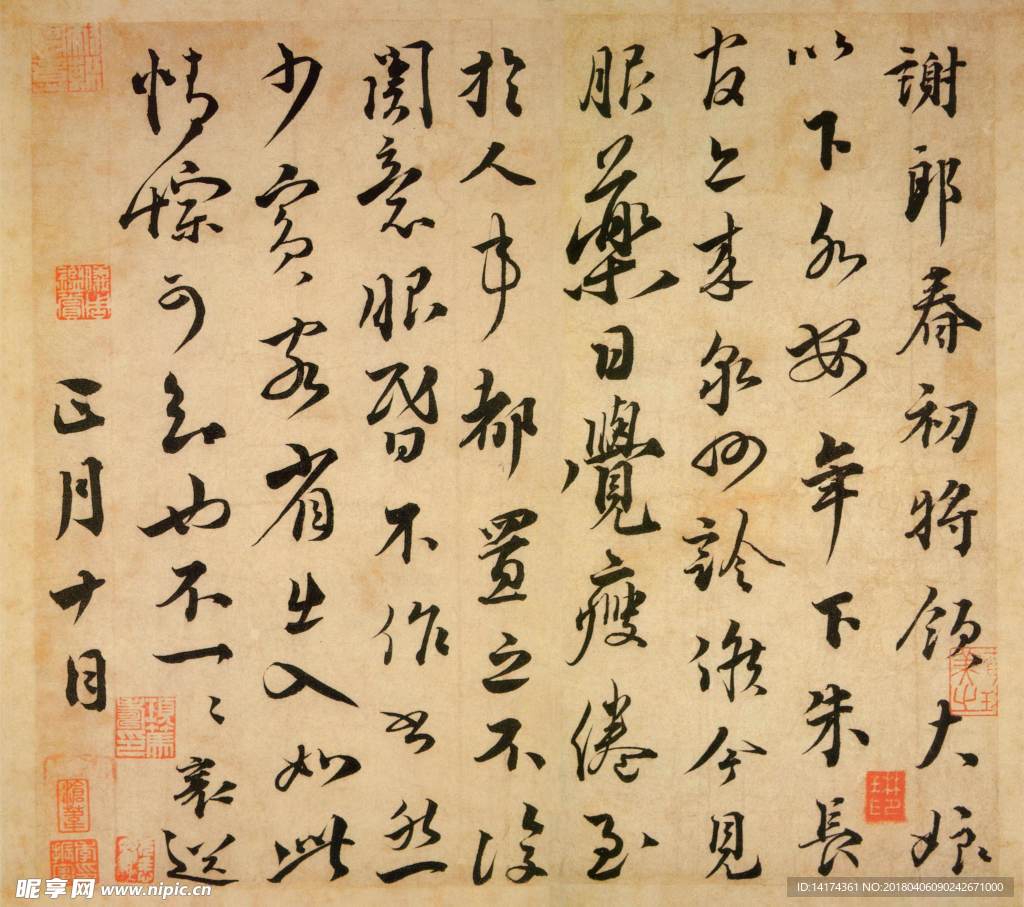 謝郎春初將領大娘
以下各安年下朱長
官亦来泉州診候今見
服藥日覺瘦倦至
於人事都置之不復
關意眼昏不作書然
少賓客省出入如此
情悰可知也不一一襄送
正月十日
昵享网 www.nipic.cn
ID:14174361 NO:20180406090242671000